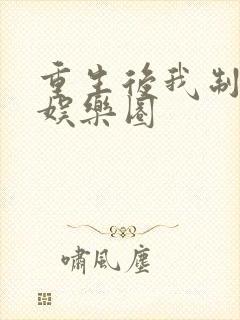 重生後我制
娛樂圈
嘯風塵